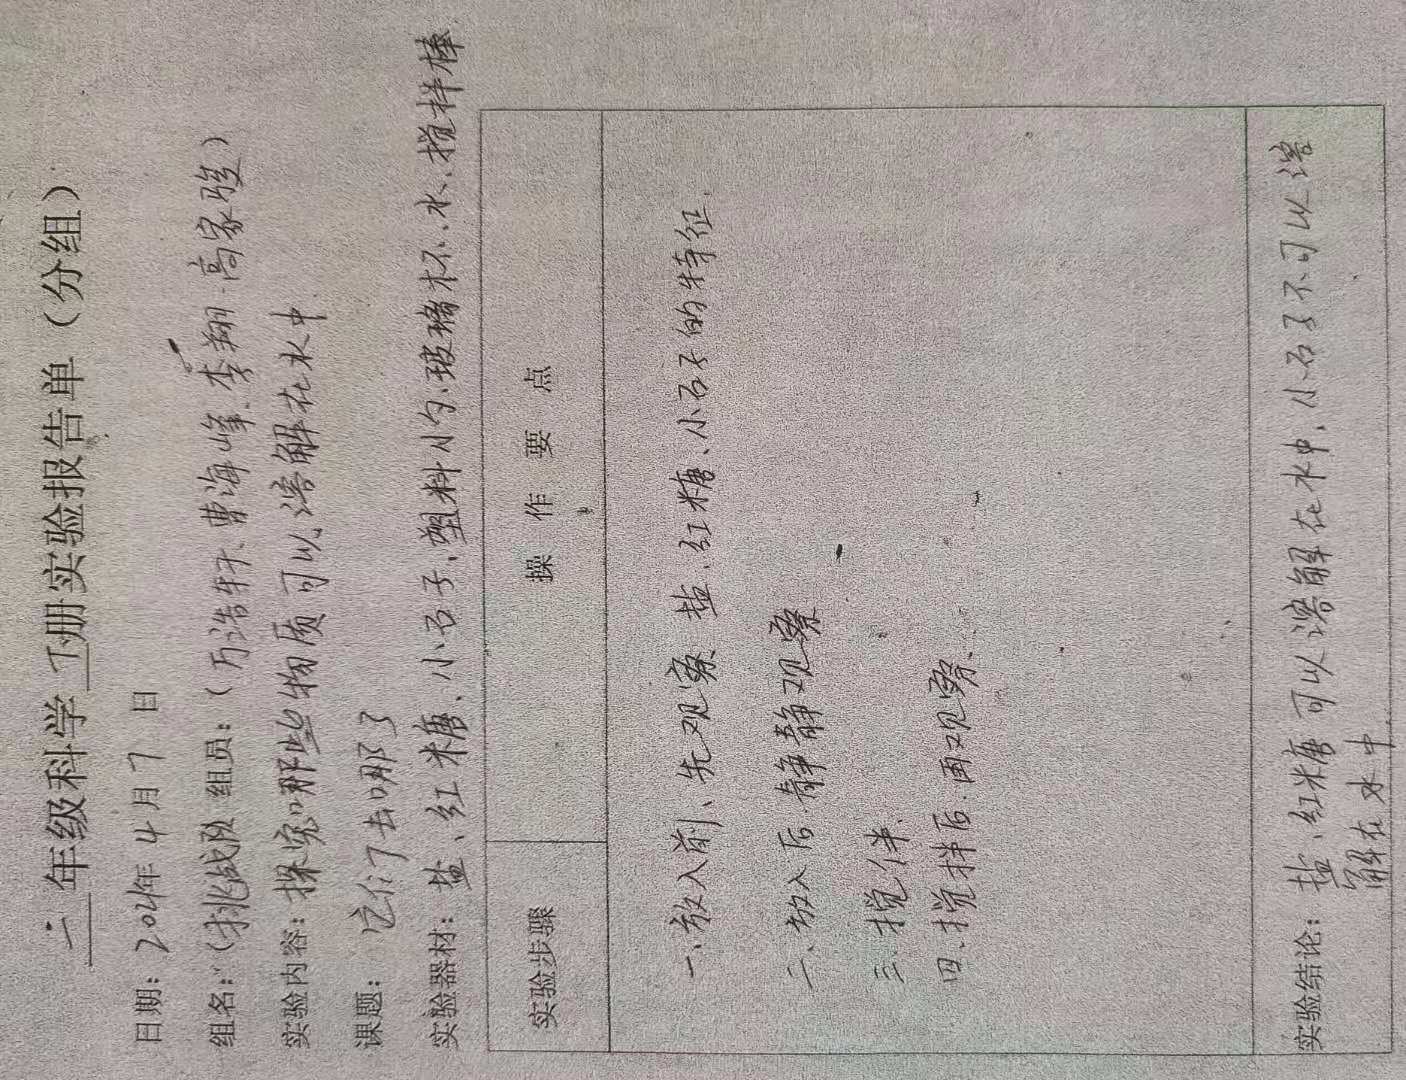 一年级科学下册实验报告单（分组）
日期：2021年4月7日
组名：（挑战队 组员：（万浩轩、曹海峰、李翔、高家骏）
实验内容：探究哪些物质可以溶解在水中
课题：它们去哪了
实验器材：盐、红糖、小石子、塑料小勺、玻璃杯、水、搅拌棒
实验步骤 操作要点
一、放入前、先观察 盐、红糖、小石子的特征
二、放入后、静静观察
三、搅伴
四、搅拌后、再观察
实验结论：盐、红糖可以溶解在水中，小石子不可以溶
解在水中